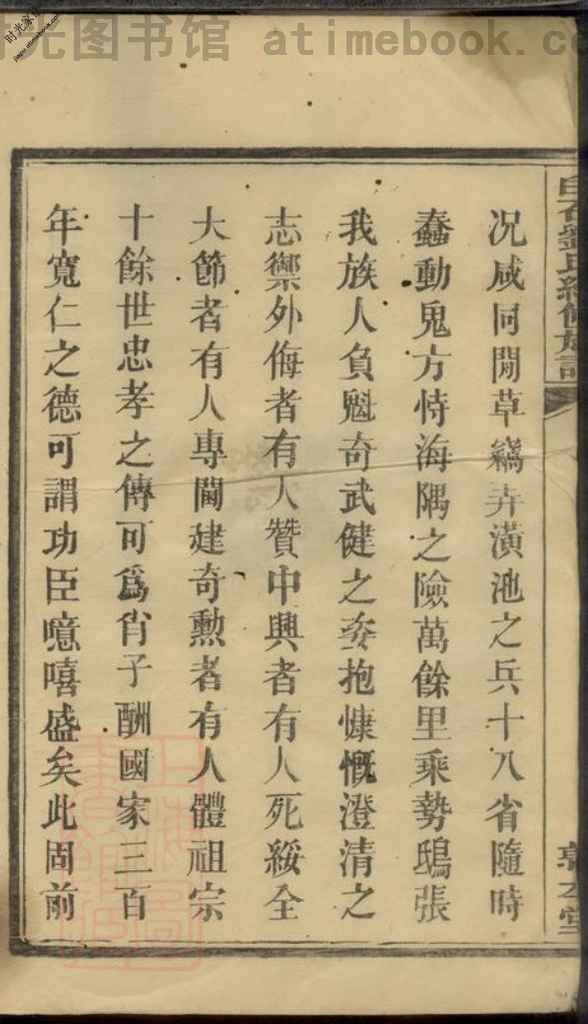 时光图书馆 atimebook.co
况咸同閒草竊弄潢池之兵十八省隨時
蠢動鬼方恃海隅之險萬餘里乘勢鴟張
我族人負魁奇武健之姿抱慷慨澄清之
志禦外侮者有人贊中興者有人死綏全
大節者有人專閫建奇勲者有人體祖宗
十餘世忠孝之傳可爲肖子酬國家三百
年寬仁之德可謂功臣噫嘻盛矣此固前